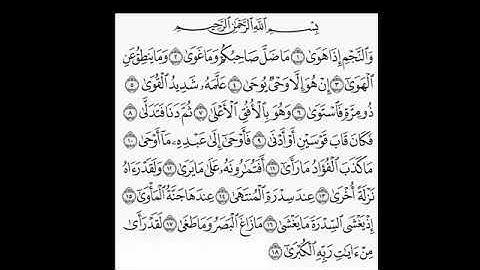 بِسْمِ اللَّهِ الرَّحْمَٰنِ الرَّحِيمِ
وَالنَّجْمِ إِذَا هَوَىٰ ١ مَا ضَلَّ صَاحِبُكُمْ وَمَا غَوَىٰ ٢ وَمَا يَنطِقُ عَنِ
الْهَوَىٰ ٣ إِنْ هُوَ إِلَّا وَحْيٌ يُوحَىٰ ٤ عَلَّمَهُ شَدِيدُ الْقُوَىٰ ٥
ذُو مِرَّةٍ فَاسْتَوَىٰ ٦ وَهُوَ بِالْأُفُقِ الْأَعْلَىٰ ٧ ثُمَّ دَنَا فَتَدَلَّىٰ ٨
فَكَانَ قَابَ قَوْسَيْنِ أَوْ أَدْنَىٰ ٩ فَأَوْحَىٰ إِلَىٰ عَبْدِهِ مَا أَوْحَىٰ ١٠
مَا كَذَبَ الْفُؤَادُ مَا رَأَىٰ ١١ أَفَتُمَارُونَهُ عَلَىٰ مَا يَرَىٰ ١٢ وَلَقَدْ رَءَاهُ
نَزْلَةً أُخْرَىٰ ١٣ عِندَ سِدْرَةِ الْمُنتَهَىٰ ١٤ عِندَهَا جَنَّةُ الْمَأْوَىٰ ١٥
إِذْ يَغْشَى السِّدْرَةَ مَا يَغْشَىٰ ١٦ مَا زَاغَ الْبَصَرُ وَمَا طَغَىٰ ١٧ لَقَدْ رَأَىٰ
مِنْ ءَايَٰتِ رَبِّهِ الْكُبْرَىٰ ١٨